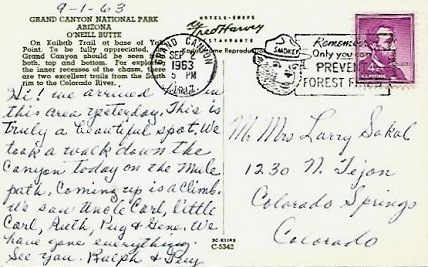 9-1-63
GRAND CANYON NATIONAL PARK
ARIZONA
O'NEILL BUTTE
On Kaibab Trail at base of Yaki
Point. To be fully appreciated,
Grand Canyon should be seen from
both, top and bottom. For exploring
the inner recesses of the chasm, there
are two excellent trails from the South
rim to the Colorado River.
Hi! We arrived in
this area yesterday. This is
truly a beautiful spot. We
took a walk down the
Canyon today on the Mule
path. Coming up is a climb.
We saw Uncle Carl, little
Carl, Ruth, Pug & Gene. We
have gone everything.
See you. Ralph &
HOTELS-SHOPS
Fred Harvey
RESTAURANTS
Kodachrome Reproduction
GRAND CANYON
SEP 1
5 PM
1963
ARIZ.
SMOKEY
Remember
Only you can
PREVENT
FOREST FIRES
U.S. POSTAGE
Mr Mrs Larry Sakal
1230 N. Tejon
Colorado Springs
Colorado
3C-K1195
C-5342